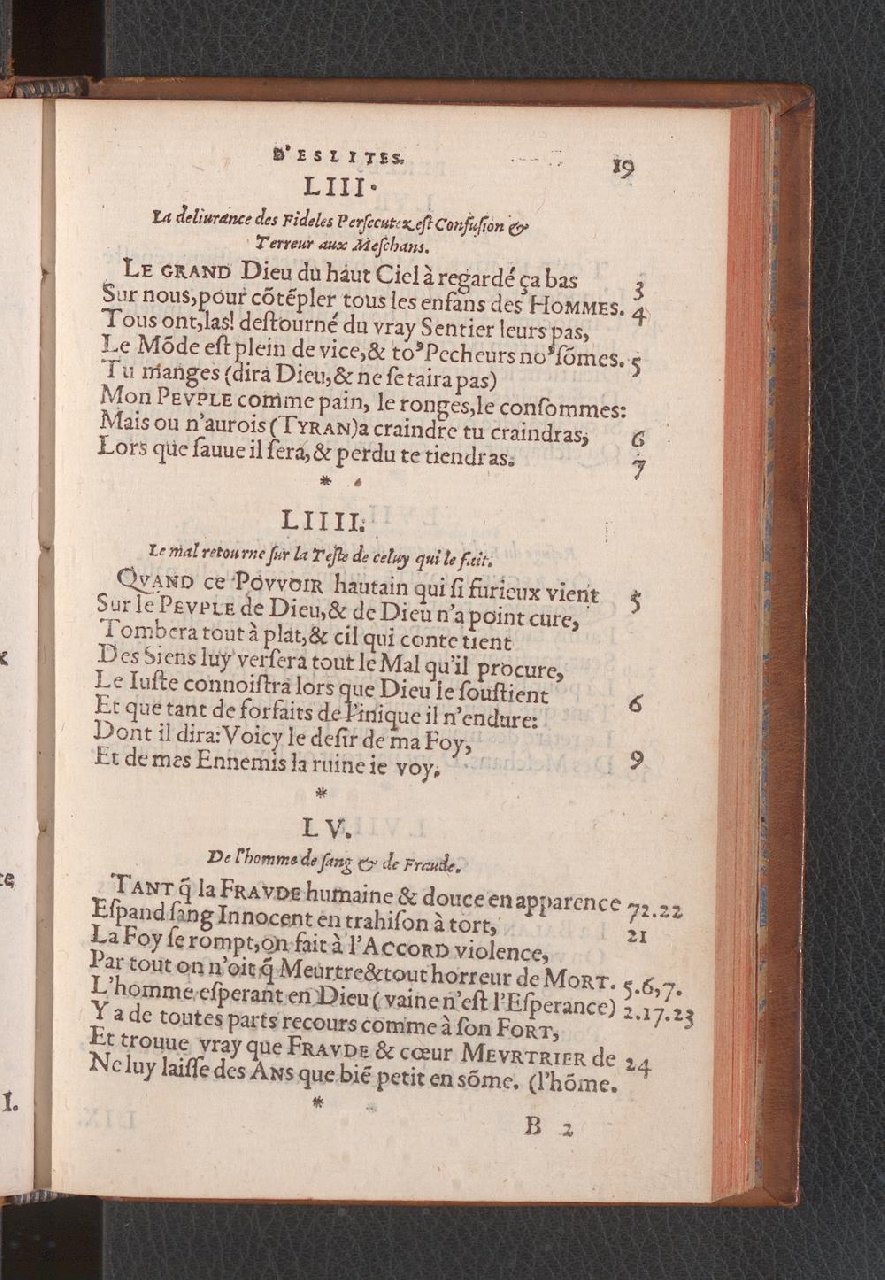 D'ESLITES. 19
LIII.
La deliurance des Fideles Persecutez est Confusion &
Terreur aux Meschans.
LE GRAND Dieu du haut Ciel à regardé ça bas
Sur nous, pour cõtépler tous les enfans des HOMMES. 3
Tous ont, las! destourné du vray Sentier leurs pas, 4
Le Mõde est plein de vice, & toꝰ Pecheurs noꝰ sõmes. 5
Tu manges (dira Dieu, & ne se taira pas)
Mon PEVPLE comme pain, le ronges, le consommes:
Mais ou n'aurois (TYRAN) a craindre tu craindras, 6
Lors que sauue il sera, & perdu te tiendras. 7
*
LIIII.
Le mal retourne sur la Teste de celuy qui le fait.
QVAND ce POVVOIR hautain qui si furieux vient
Sur le PEVPLE de Dieu, & de Dieu n'a point cure, 5
Tombera tout à plat, & cil qui conte tient
Des Siens luy versera tout le Mal qu'il procure,
Le Iuste connoistra lors que Dieu le soustient
Et que tant de forfaits de l'inique il n'endure: 6
Dont il dira: Voicy le desir de ma Foy,
Et de mes Ennemis la ruine ie voy. 9
*
LV.
De l'homme de sang & de Fraude.
TANT q̃ la FRAVDE humaine & douce en apparence 72.22
Espand sang Innocent en trahison à tort, 21
La Foy se rompt, on fait à l'ACCORD violence,
Par tout on n'oit q̃ Meurtre & tout horreur de MORT. 5.6,7.
L'homme esperant en Dieu (vaine n'est l'Esperance) 2.17.23
Y a de toutes parts recours comme à son FORT,
Et trouue vray que FRAVDE & cœur MEVRTRIER de 24
Ne luy laisse des ANS que bié petit en sõme. (l'hõme.
*
B 2